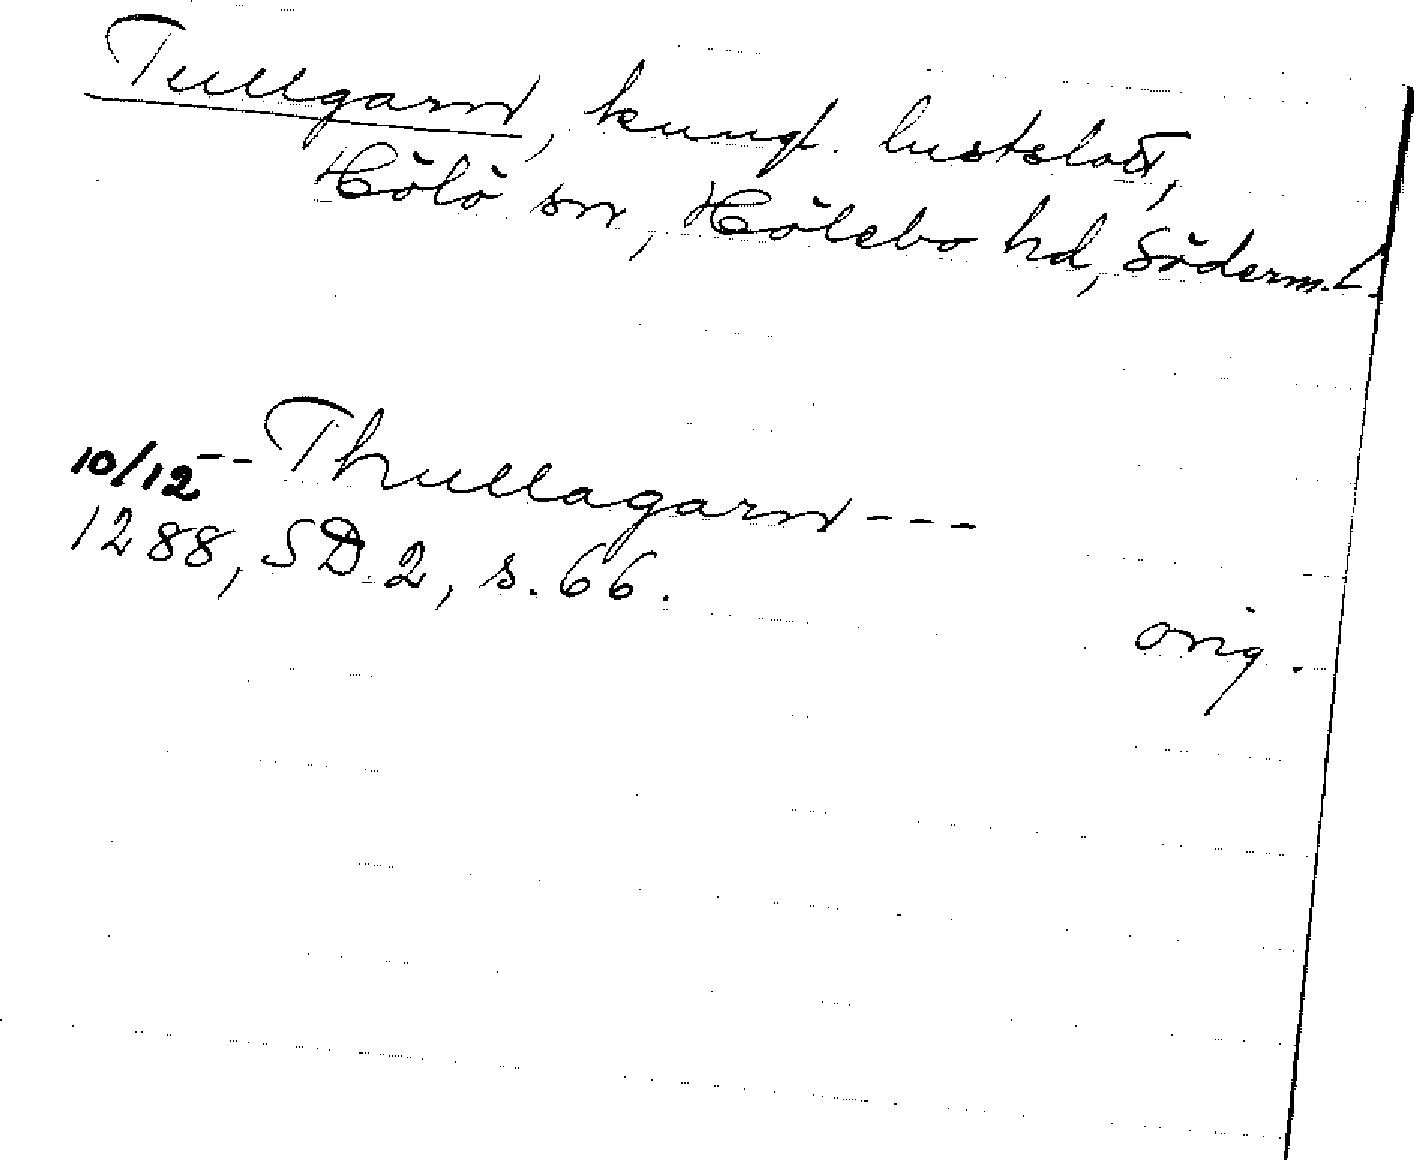 Tullgarn, kungl. lustslott,
Hölö sn, Hölebo hd, Söderm.l.
10/12 -- Thullagarn ---
1288, SD 2, s. 66.
orig.